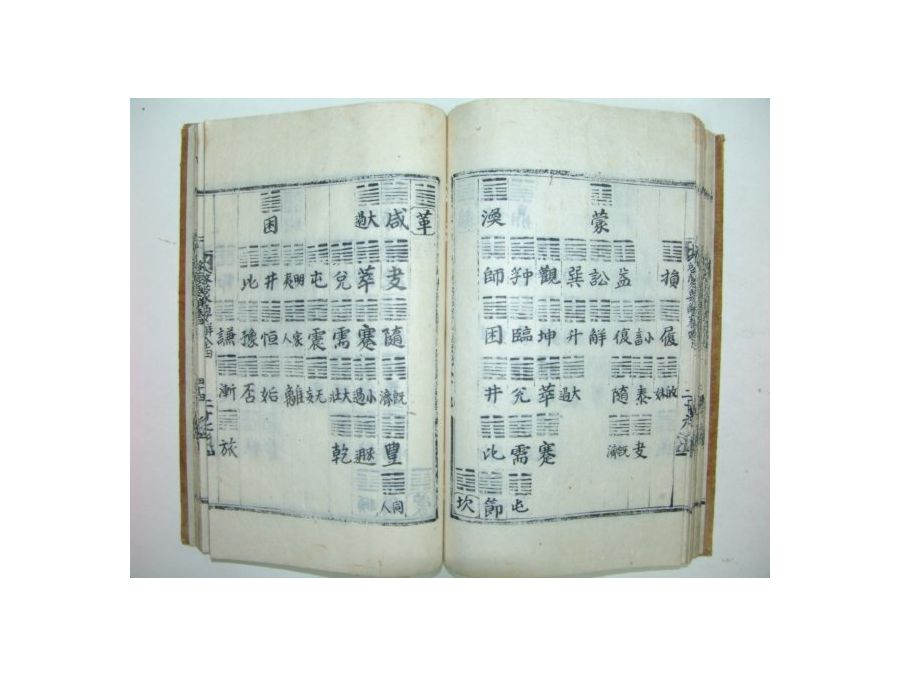 損履歸妹
小泰夬
益復隨既濟
蒙訟解
巽升大過
觀坤萃蹇
臨兌需屯
渙師困井比節
坎
革
咸夬隨既濟豐同人
大過萃蹇小過遯
兌需大壯乾
屯震无妄
明夷家人離
困井恒姤
比豫否
謙漸旅